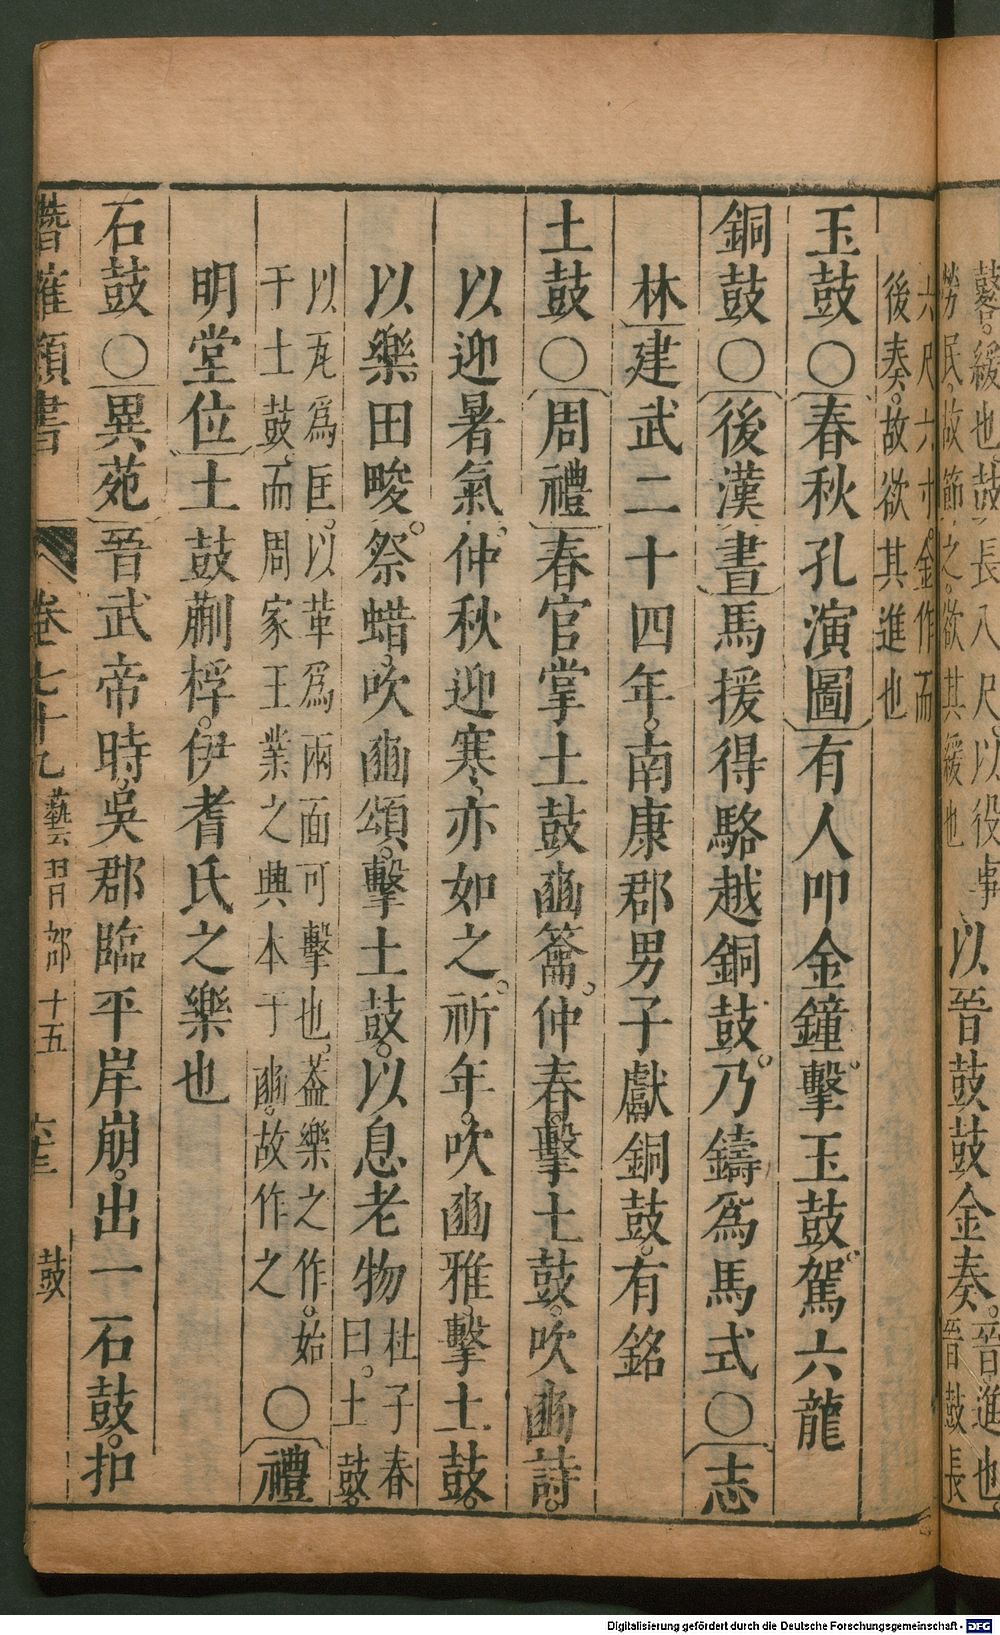 鼛。緩也鼓長八尺。以役事
勞民。故節之。欲其緩也
以晉鼓鼓金奏。
晉進也。
晉鼓長
六尺六寸。金作而
後奏。故欲其進也
玉鼓○春秋孔演圖有人叩金鐘。擊玉鼓。駕六龍
銅鼓○後漢書馬援得駱越銅鼓。乃鑄爲馬式○志
林建武二十四年。南康郡男子獻銅鼓。有銘
土鼓○周禮春官掌土鼓豳籥。仲春。擊土鼓。吹豳詩。
以迎暑氣。仲秋迎寒、亦如之。祈年。吹豳雅、擊土鼓。
以樂田畯。祭蜡。吹豳頌。擊土鼓。以息老物
杜子春
曰。土鼓。
以瓦爲匡。以革爲兩面可擊也。蓋樂之作。始
于土鼓。而周家王業之興本于豳。故作之
○禮
明堂位土鼓蒯桴。伊耆氏之樂也
石鼓○異苑晉武帝時、吳郡臨平岸崩。出一石鼓。扣
潛確類書
卷七十九
藝習部十五
六十三
鼓
Digitalisierung gefördert durch die Deutsche Forschungsgemeinschaft - DFG